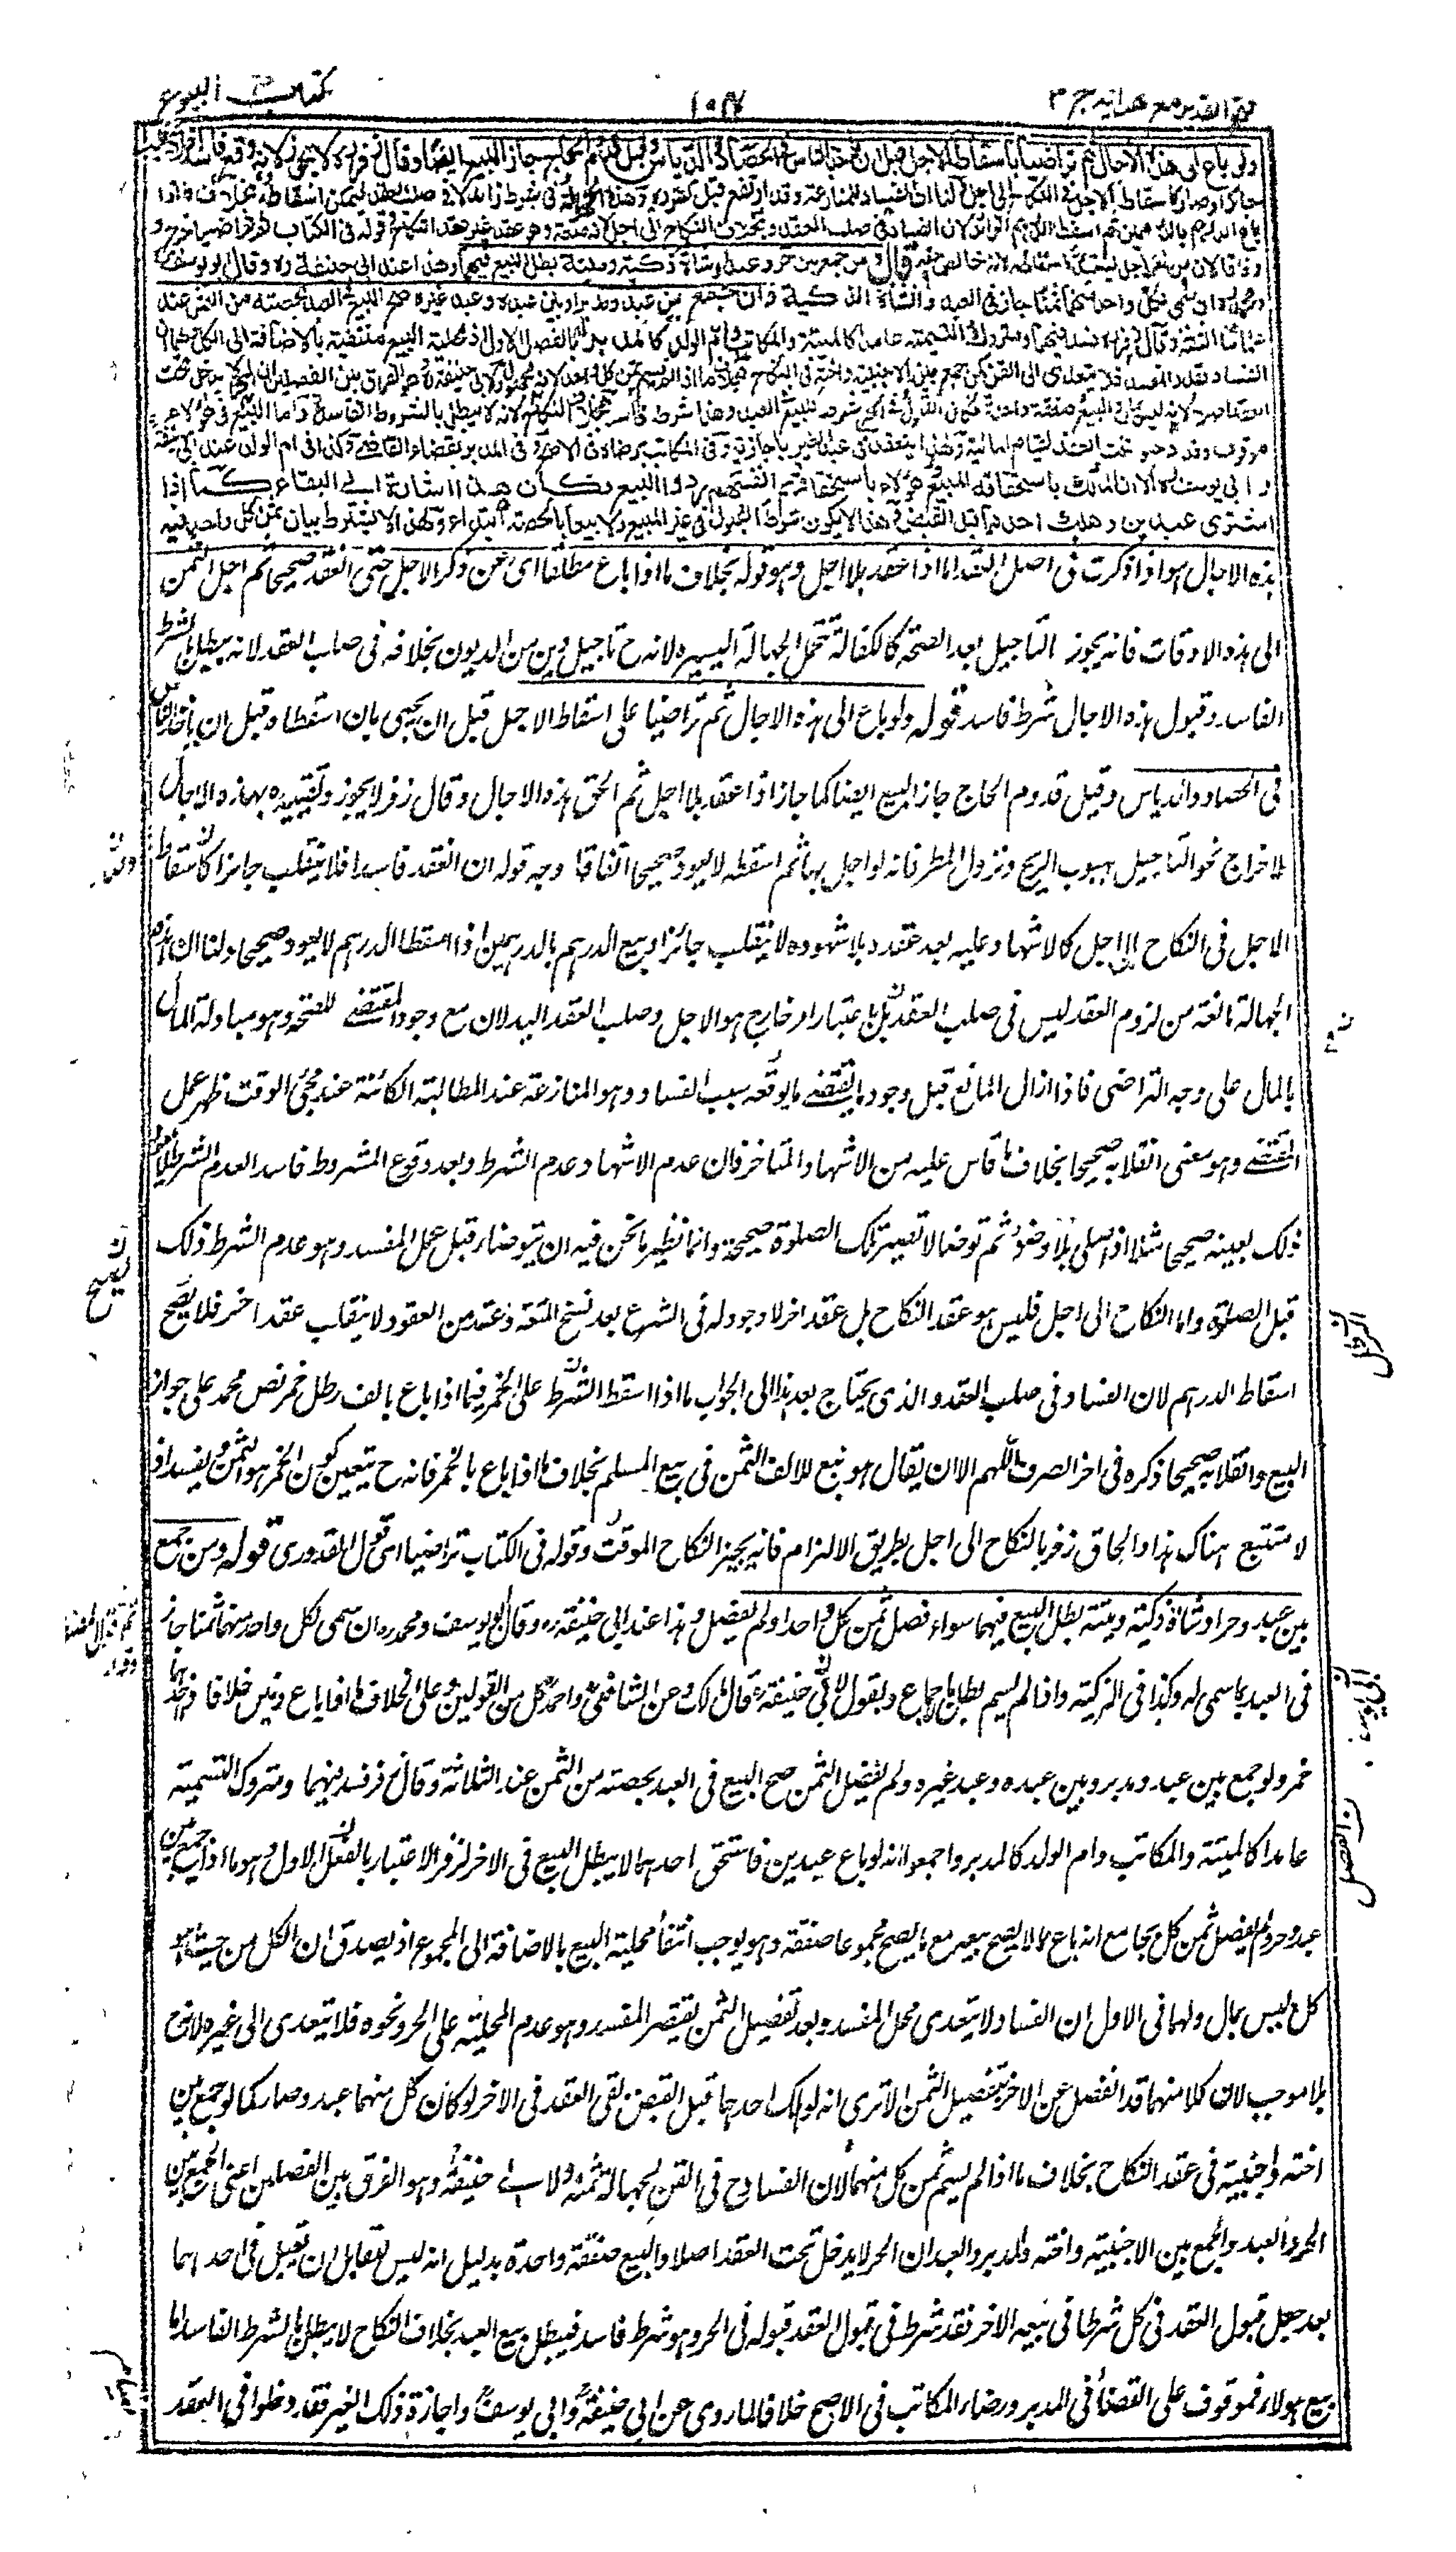 فتح القدير مع هدايه ج ٣
كتاب البيوع
ولو باع الى هذه الاجال ثم تراضيا باسقاط الاجل قبل ان ياخذ الناس فى الحصاد والدياس وقبل قدوم الحاج جاز البيع ايضا وقال زفر لا يجوز لانه وقع فاسدا فلا ينقلب
جائزا وصار كاسقاط الاجل فى النكاح الى اجل ولنا ان الفساد للمنازعة وقد ارتفع قبل تقرره وهذه الجهالة فى شرط زائد لا فى صلب العقد فيمكن اسقاطه بخلاف ما اذا
باع الدرهم بالدرهمين ثم اسقطا الدرهم الزائد لان الفساد فى صلب العقد وبخلاف النكاح الى اجل لانه متعة وهو عقد غير عقد النكاح وقوله فى الكتاب ثم تراضيا خرج و
فاقا لان من له الاجل يستبد باسقاطه لانه خالص حقه قال ومن جمع بين حر وعبد او شاة ذكية وميتة بطل البيع فيهما وهذا عند ابى حنيفة ره وقال ابو يوسف
ومحمد ره ان سمى لكل واحد منهما ثمنا جاز فى العبد والشاة الذكية وان جمع بين عبد ومدبر او بين عبده وعبد غيره صح البيع فى العبد بحصته من الثمن عند
علمائنا الثلثة وقال زفر ره فسد فيهما ومتروك التسمية عامدا كالميتة والمكاتب وام الولد كالمدبر له الاعتبار بالفصل الاول اذ محلية البيع منتفية بالاضافة الى الكل ولهما ان
الفساد بقدر المفسد فلا يتعدى الى القن كمن جمع بين الاجنبية واخته فى النكاح بخلاف ما اذا لم يسم ثمن كل واحد لانه مجهول ولابى حنيفة ره وهو الفرق بين الفصلين ان الحر لا يدخل تحت
العقد اصلا لانه ليس بمال والبيع صفقة واحدة فكان القبول فى الحر شرطا للبيع فى العبد وهذا شرط فاسد بخلاف النكاح لانه لا يبطل بالشروط الفاسدة واما البيع فى هؤلاء
موقوف وقد دخلوا تحت العقد لقيام المالية ولهذا ينعقد فى عبد الغير باجازته وفى المكاتب برضاه فى الاصح وفى المدبر بقضاء القاضى وكذا فى ام الولد عند ابى حنيفة
وابى يوسف ره الا ان المالك باستحقاقه المبيع وهؤلاء باستحقاقهم انفسهم ردوا البيع فكان هذا اشارة الى البقاء كما اذا
اشترى عبدين وهلك احدهما قبل القبض وهذا لا يكون شرط القبول فى غير المبيع ولا بيعا بالحصة ابتداء ولهذا لا يشترط بيان ثمن كل واحد فيه
هذه الاجال هو اذا ذكرت فى اصل العقد اما اذا عقد بلا اجل وهو قوله بخلاف ما اذا باع مطلقا اى عن ذكر الاجل حتى انعقد صحيحا ثم اجل الثمن
الى هذه الاوقات فانه يجوز التاجيل بعد الصحة كالكفالة تتحمل الجهالة اليسيرة لانه ح تاجيل دين من الديون بخلافه فى صلب العقد لانه يبطل بالشرط
الفاسد وقبول هذه الاجال شرط فاسد قوله ولو باع الى هذه الاجال ثم تراضيا على اسقاط الاجل قبل ان يجيى بان اسقطا وقبل ان ياخذ الناس
فى الحصاد والدياس وقبل قدوم الحاج جاز البيع ايضا كما جاز اذا عقد بلا اجل ثم الحق هذه الاجال وقال زفر لا يجوز وتقييده بهذه الاجال
لاخراج نحو التاجيل بهبوب الريح ونزول المطر فانه لو اجل بها ثم اسقطه لا يعود صحيحا اتفاقا وجه قوله ان العقد فاسدا فلا ينقلب جائزا كاسقاط
الاجل فى النكاح الى اجل كالاشهاد عليه بعد عقده بلا شهود لا ينقلب جائزا وبيع الدرهم بالدرهمين اذا اسقطا الدرهم لا يعود صحيحا ولنا ان هذه
الجهالة مانعة من لزوم العقد ليس فى صلب العقد بل باعتبار امر خارج هو الاجل وصلب العقد البدلان مع وجود المقتضى للصحة وهو مبادلة المال
بالمال على وجه التراضى فاذا زال المانع قبل وجود ما يقتضى ما يوقعه سبب الفساد وهو المنازعة عند المطالبة الكائنة عند مجئ الوقت ظهر عمل
المقتضى وهو معنى انقلابه صحيحا بخلاف ما قاس عليه من الاشهاد المتاخر فان عدم الاشهاد عدم الشرط وبعد وقوع المشروط فاسدا لعدم الشرط لا
ذلك بعينه صحيحا مثلا اذا صلى بلا وضوء ثم توضا لا تصير تلك الصلوة صحيحة وانما نظير ما نحن فيه ان يتوضا قبل عمل المفسد وهو عدم الشرط ذلك
قبل الصلوة واما النكاح الى اجل فليس هو عقد النكاح بل عقد اخر لا وجود له فى الشرع بعد نسخ المتعة وعقد من العقود لا ينقلب عقدا اخر فلا يصح
اسقاط الدرهم لان الفساد فى صلب العقد والذى يحتاج بعد هذا الى الجواب ما اذا اسقط الشرط على الخمر فيما اذا باع بالف رطل خمر نص محمد على جواز
البيع وانقلابه صحيحا ذكره فى اخر الصرف اللهم الا ان يقال هو تبع للالف الثمن فى بيع المسلم بخلاف ما اذا باع بالخمر فانه ح يتعين كون الخمر هو الثمن ويفسد اذ
لا مستتبع هناك هذا والحاق زفر بالنكاح الى اجل بطريق الالزام فانه يجيز النكاح الموقت وقوله فى الكتاب تراضيا اى قول القدورى قوله ومن جمع
بين عبد وحر او شاة ذكية وميتة بطل البيع فيهما سواء فصل ثمن كل واحد او لم يفصل وهذا عند ابى حنيفة ره وقال ابو يوسف ومحمد ره ان سمى لكل واحد منهما ثمنا جاز
فى العبد بما سمى له وكذا فى الذكية واذا لم يسم بطل بالاجماع وبقول ابى حنيفة قال مالك وعن الشافعى واحمد كل من القولين وعلى الخلاف ما اذا باع دنين خلا فاذا احدهما
خمر ولو جمع بين عبد ومدبر وبين عبده وعبد غيره ولم يفصل الثمن صح البيع فى العبد بحصته من الثمن عند الثلاثة وقال زفر فسد فيهما ومتروك التسمية
عامدا كالميتة والمكاتب وام الولد كالمدبر واجمعوا انه لو باع عبدين فاستحق احدهما لا يبطل البيع فى الاخر لزفر الاعتبار بالفصل الاول وهو ما اذا جمع بين
عبد وحر ولم يفصل ثمن كل بجامع انه باع ما لا يصح بيعه مع ما يصح مجموعا صفقة وهو يوجب انتفاء محلية البيع بالاضافة الى المجموع اذ يصدق ان الكل من حيث هو
كل ليس بمال ولهما فى الاول ان الفساد لا يتعدى محل المفسد وبعد تفصيل الثمن يقتصر المفسد وهو عدم المحلية على الحر ونحوه فلا يتعدى الى غيره لانه ح
بلا موجب لان كلا منهما قد انفصل عن الاخر بتفصيل الثمن الا ترى انه لو هلك احدهما قبل القبض بقى العقد فى الاخر لو كان كل منهما عبدا وصار كما لو جمع بين
اخته واجنبية فى عقد النكاح بخلاف ما اذا لم يسم ثمن كل منهما لان الفساد ح فى القن لجهالة ثمنه ولابى حنيفة وهو الفرق بين الفصلين اعنى الجمع بين
الحر والعبد والجمع بين الاجنبية واخته والمدبر والعبد ان الحر لا يدخل تحت العقد اصلا والبيع صفقة واحدة بدليل انه ليس للقابل ان يقبل فى احدهما
بعد جعل قبول العقد فى كل شرطا فى بيعه الاخر فقد شرط فى قبول العقد قبوله فى الحر وهو شرط فاسد فيبطل بيع العبد بخلاف النكاح لا يبطل بالشرط الفاسد اما
بيع هؤلاء فموقوف على القضاء فى المدبر ورضاء المكاتب فى الاصح خلافا لما روى عن ابى حنيفة وابى يوسف واجازة ذلك الغير فقد دخلوا فى العقد